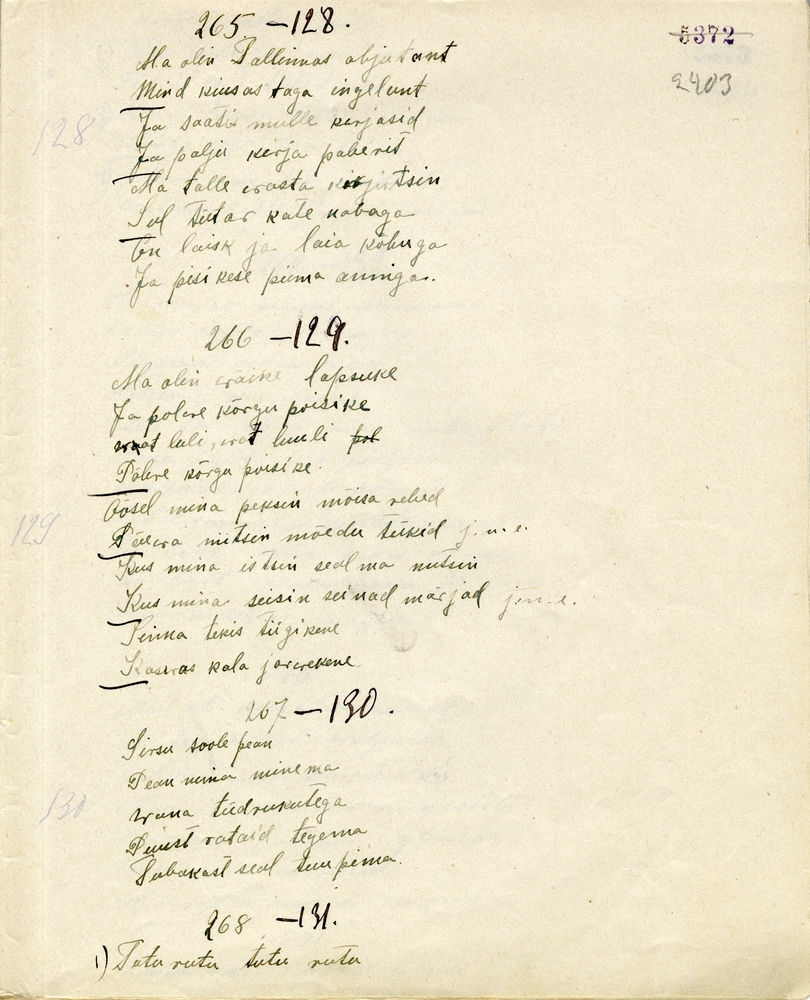 265 — 128.
5372
2403
Ma olin Tallinnas abjutant
Mind kiusas taga ingelant
128
Ja saatis mulle kirjasid
Ja palju kirja paberit
Ma talle wasta kirjutsin
Sul tütar kate nabaga
On laisk ja laia kõhuga
Ja pisikese piima anniga.
266 — 129.
Ma olin wäike lapsuke
Ja põlwe kõrgu poisike
waat luli, wat luuli
Põlwe kõrgu poisike.
Öösel mina peksin mõisa rehed
129
Päewa niitsin mõedu tükid j.n.e.
Kus mina istsin seal ma nutsin
Kus mina seisin seinad märjad j.n.e.
Sinna tekis tiigikene
Kaswas kala järwekene.
267 — 130.
Sirsu soole pean
Pean mina minema
130
wana tüdrukutega
Puust rataid tegema
Tubakast seal tuupima.
268 — 131.
1) Tuturutu tutu rutu